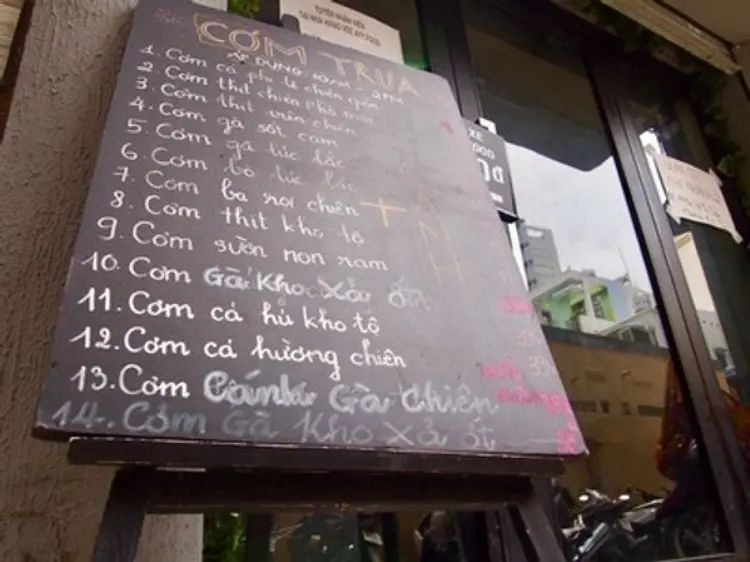 TUYỂN NHÂN VIÊN
TẠI NHÀ HÀNG
CƠM TRƯA
ÁP DỤNG 10AM - 2PM
1. Cơm cá phi lê chiên giòn
2. Cơm thịt chiên phô mai
3. Cơm thịt viên chiên
4. Cơm gà sốt cam
5. Cơm gà lúc lắc
6. Cơm bò lúc lắc
7. Cơm ba rọi chiên
8. Cơm thịt kho tộ
9. Cơm sườn non ram
10. Cơm Gà Kho Xả ớt
11. Cơm cá hú kho tộ
12. Cơm cá hường chiên
13. Cơm Cánh Gà Chiên
14. Cơm Gà Kho Xả ớt
+ CANH
XE
FOOD